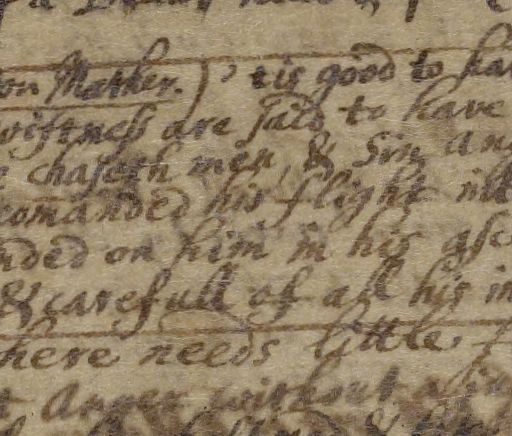 on Mather.) tis good to ha
wiftness are said to have
chaseth men, & Sin, an
comanded his flight
nded on him in his asc
& carefull of all his in
here needs little
Anger without